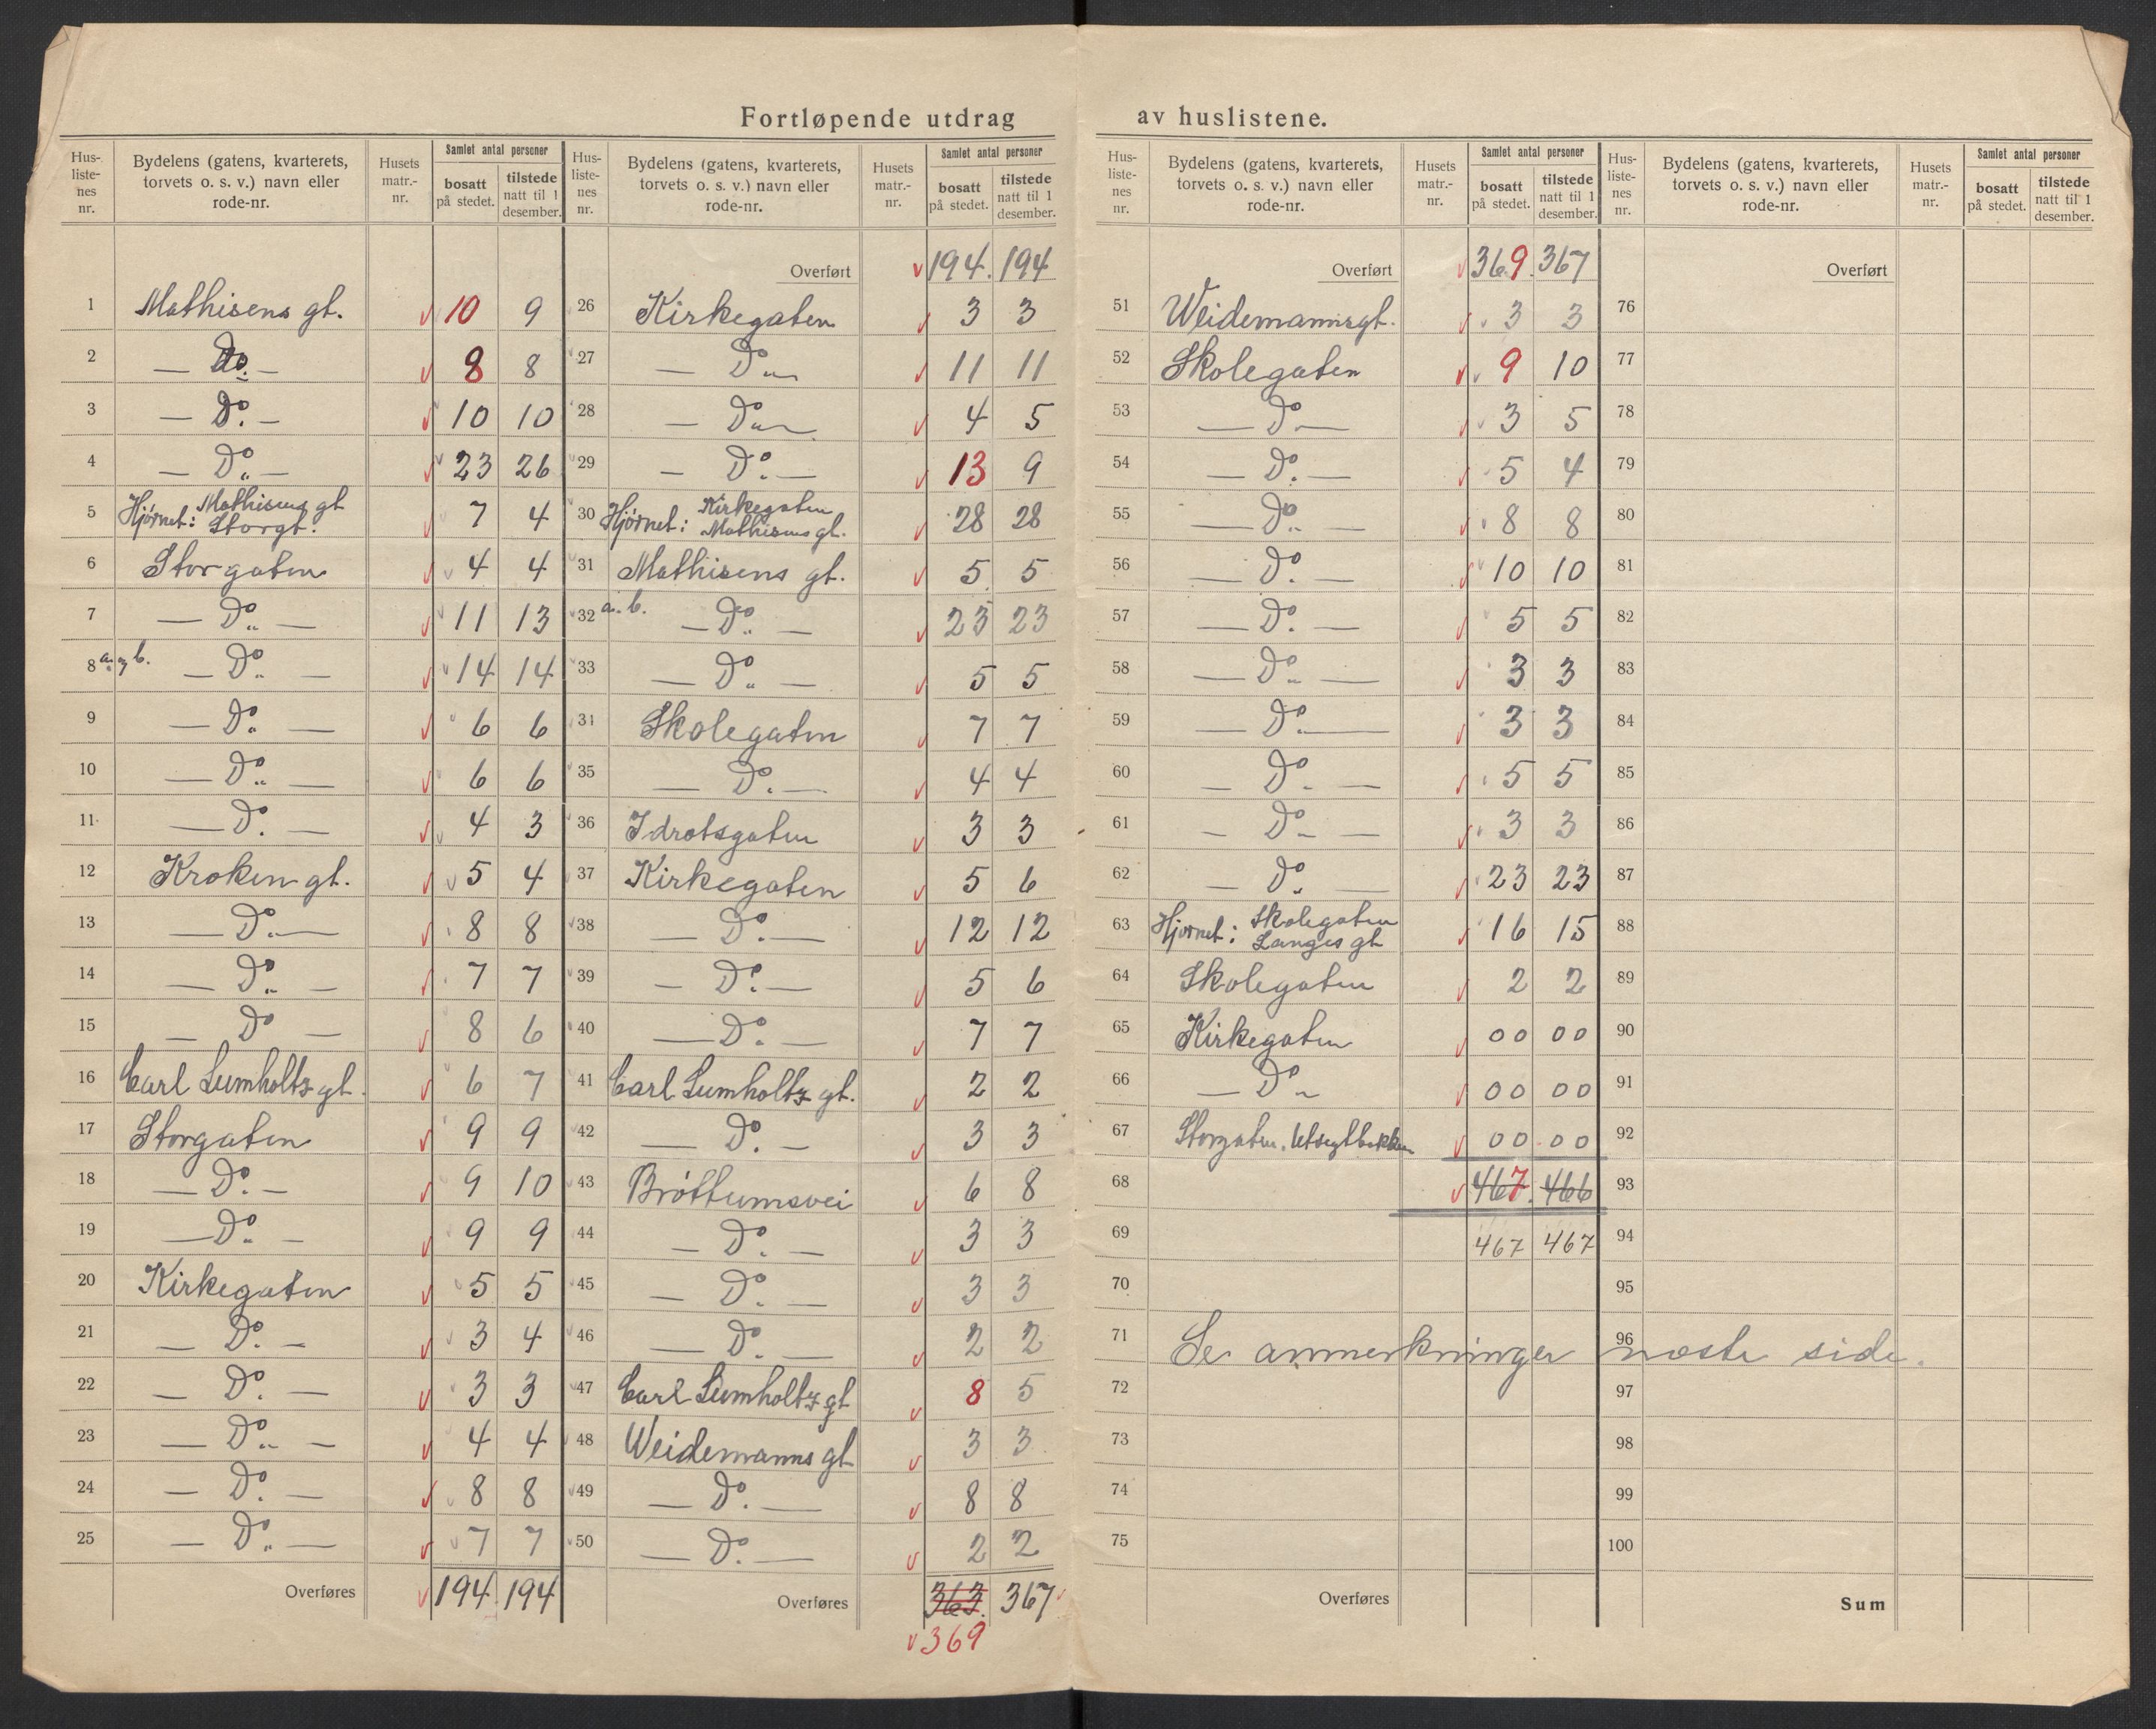 Fortløpende utdrag av huslistene.
Hus-listenes nr. | Bydelens (gatens, kvarterets, torvets o. s. v.) navn eller rode-nr. | Husets matr.-nr. | Samlet antal personer: bosatt på stedet. | tilstede natt til 1 desember.
1 Mathisens gt. 10 9
2 — Do. — 8 8
3 — Do. — 10 10
4 — Do. — 23 26
5 Hjørnet: Mathisens gt Storgt. 7 4
6 Storgaten 4 4
7 — Do. — 11 13
8 a. og b. — Do. — 14 14
9 — Do. — 6 6
10 — Do. — 6 6
11 — Do. — 4 3
12 Kroken gt. 5 4
13 — Do. — 8 8
14 — Do. — 7 7
15 — Do — 8 6
16 Carl Lumholtz gt. 6 7
17 Storgaten 9 9
18 — Do. — 9 10
19 — Do. — 9 9
20 Kirkegaten 5 5
21 — Do. — 3 4
22 — Do. — 3 3
23 — Do. — 4 4
24 — Do. — 8 8
25 — Do. — 7 7
Overføres 194 194
Hus-listenes nr. | Bydelens (gatens, kvarterets, torvets o. s. v.) navn eller rode-nr. | Husets matr.-nr. | Samlet antal personer: bosatt på stedet. | tilstede natt til 1 desember.
Overført 194. 194
26 Kirkegaten 3 3
27 — Do. — 11 11
28 — Do. — 4 5
29 — Do. — 13 9
30 Hjørnet: Kirkegaten Mathisens gt. 28 28
31 Mathisens gt. 5 5
32 a. b. — Do. — 23 23
33 — Do. — 5 5
31 Skolegaten 7 7
35 — Do. — 4 4
36 Idrotsgaten 3 3
37 Kirkegaten 5 6
38 — Do. — 12 12
39 — Do. — 5 6
40 — Do. — 7 7
41 Carl Lumholtz gt. 2 2
42 — Do. — 3 3
43 Brøttumsvei 6 8
44 — Do. — 3 3
45 — Do. — 3 3
46 — Do. — 2 2
47 Carl Lumholtz gt 8 5
48 Weidemanns gt 3 3
49 — Do. — 8 8
50 — Do. — 2 2
Overføres 363. 367
369
Hus-listenes nr. | Bydelens (gatens, kvarterets, torvets o. s. v.) navn eller rode-nr. | Husets matr.-nr. | Samlet antal personer: bosatt på stedet. | tilstede natt til 1 desember.
Overført 369. 367
51 Weidemannsgt. 3 3
52 Skolegaten 9 10
53 — Do — 3 5
54 — Do. — 5 4
55 — Do. — 8 8
56 — Do. — 10 10
57 — Do. — 5 5
58 — Do — 3 3
59 — Do — 3 3
60 — Do. — 5 5
61 — Do — 3 3
62 — Do. — 23 23
63 Hjørnet: Skolegaten Langes gt 16 15
64 Skolegaten 2 2
65 Kirkegaten 00 00
66 — Do — 00 00
67 Storgaten. 00 00
68 467. 466
69 467 467
70
71 Se anmerkninger næste side.
72
73
74
75
Overføres
Hus-listenes nr. | Bydelens (gatens, kvarterets, torvets o. s. v.) navn eller rode-nr. | Husets matr.-nr. | Samlet antal personer: bosatt på stedet. | tilstede natt til 1 desember.
Overført
76
77
78
79
80
81
82
83
84
85
86
87
88
89
90
91
92
93
94
95
96
97
98
99
100
Sum